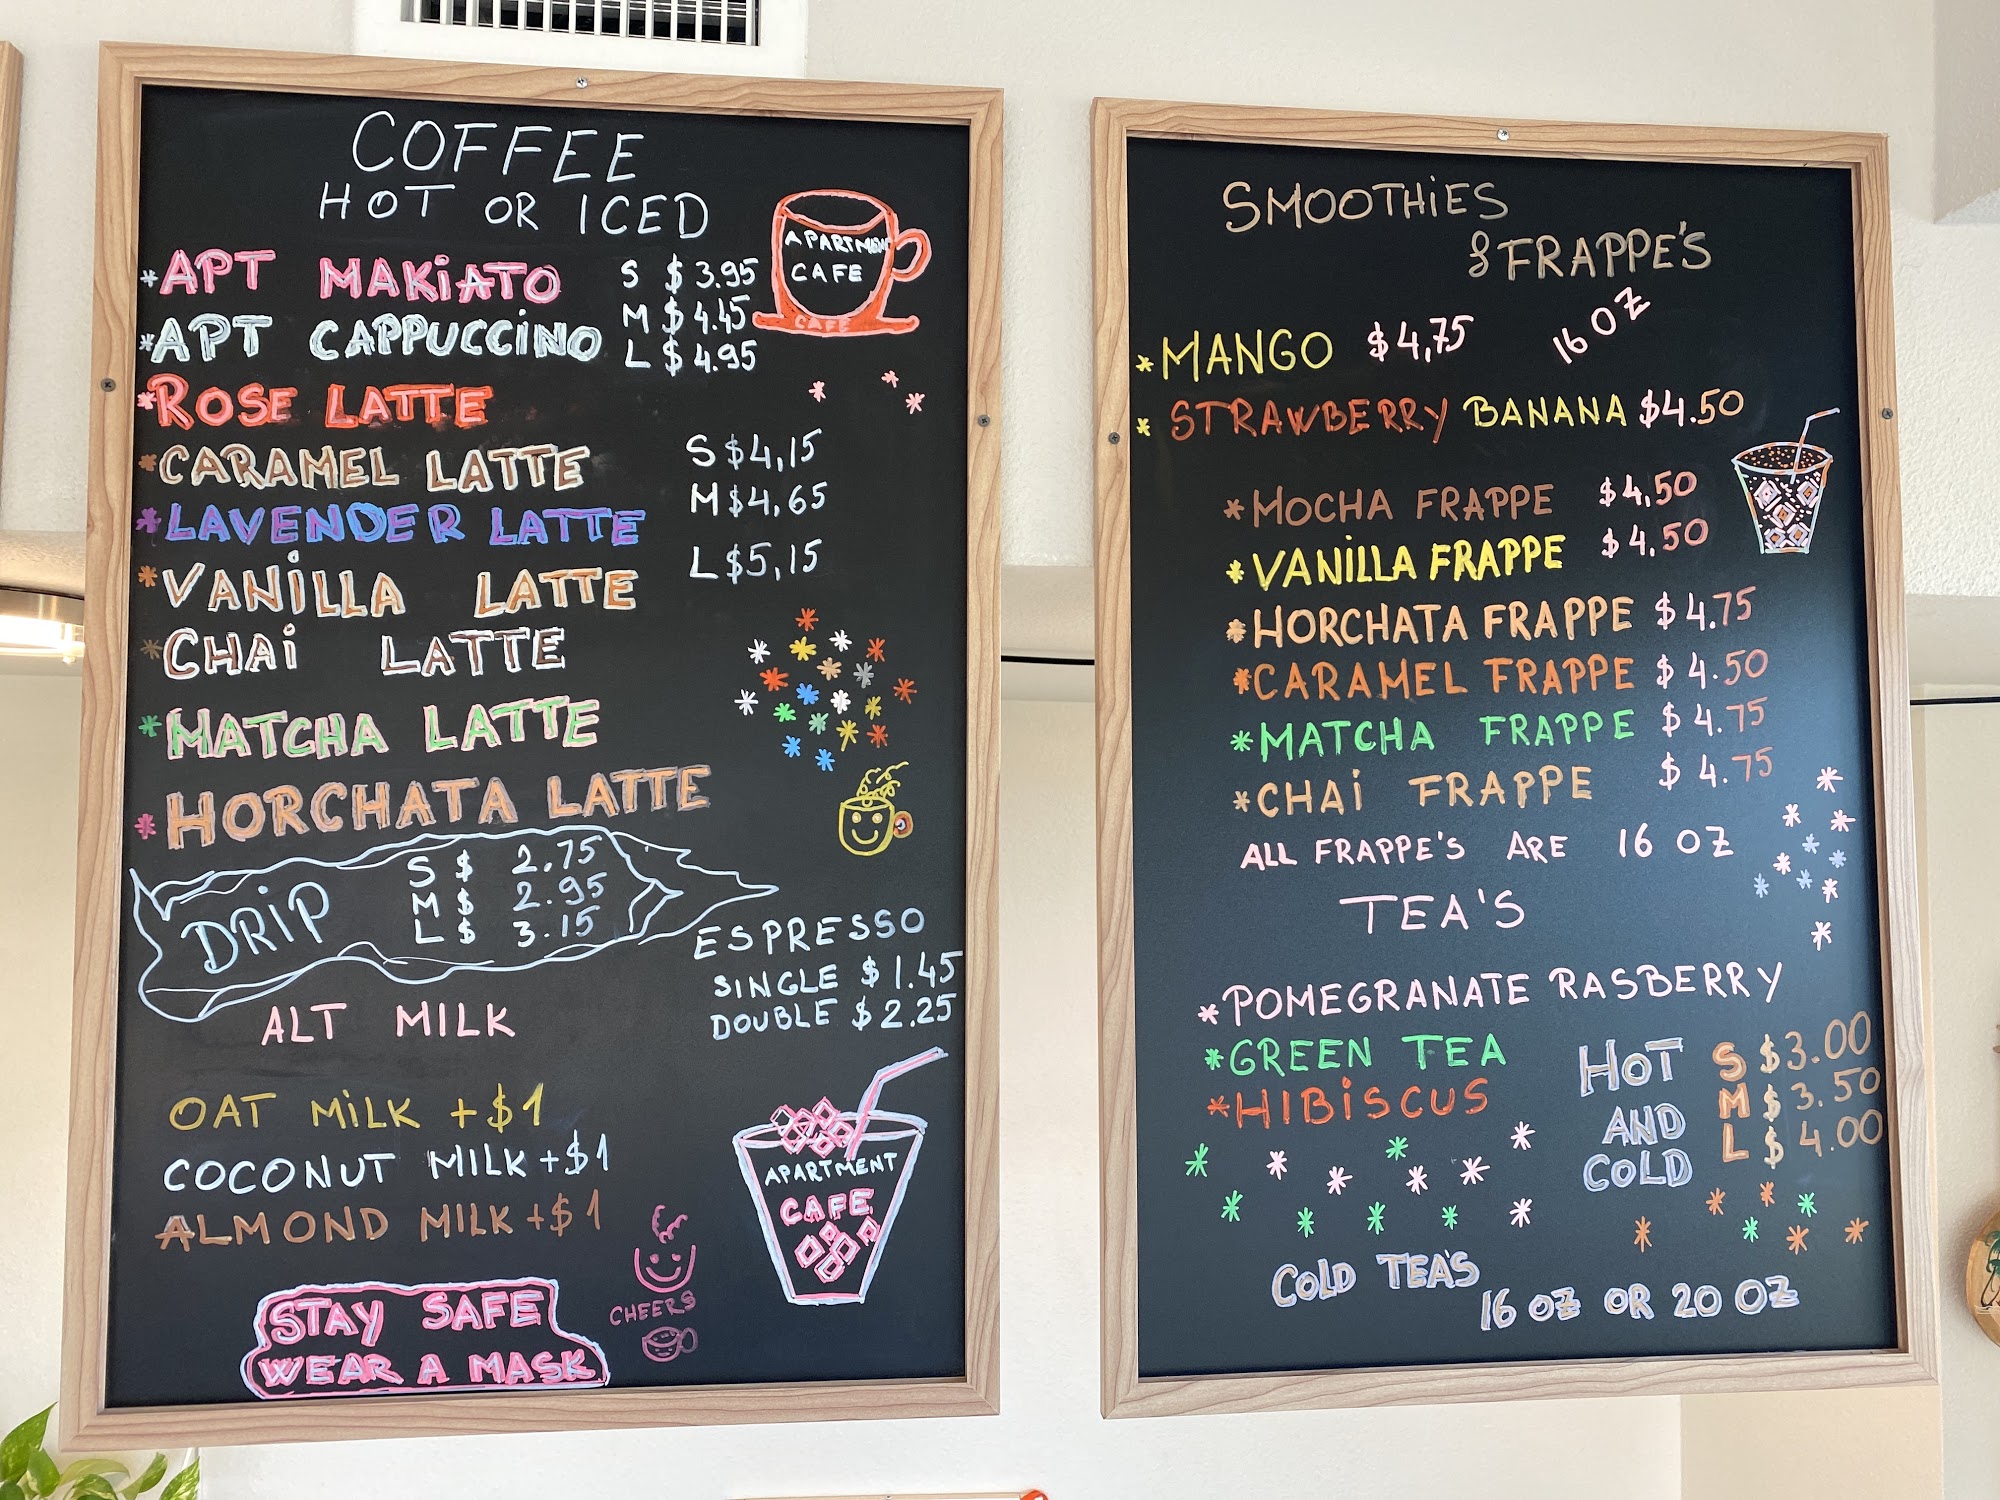 COFFEE
HOT OR ICED
*APT MAKiATO
*APT CAPPUCCiNO
S $3.95
M $4.45
L $4.95
APARTMENT
CAFE
CAFE
*ROSE LATTE
*CARAMEL LATTE
*LAVENDER LATTE
*VANiLLA LATTE
*CHAi LATTE
*MATCHA LATTE
*HORCHATA LATTE
S $4,15
M $4,65
L $5,15
DRiP
S $ 2.75
M $ 2.95
L $ 3.15
ESPRESSO
SINGLE $1.45
DOUBLE $2.25
ALT MILK
OAT MiLK +$1
COCONUT MILK +$1
ALMOND MILK +$1
APARTMENT
CAFE
CHEERS
STAY SAFE
WEAR A MASK
SMOOTHiES
& FRAPPE'S
*MANGO $4,75 16 OZ
*STRAWBERRY BANANA $4.50
*MOCHA FRAPPE $4,50
*VANiLLA FRAPPE $4,50
*HORCHATA FRAPPE $4.75
*CARAMEL FRAPPE $4.50
*MATCHA FRAPPE $4.75
*CHAi FRAPPE $4.75
ALL FRAPPE'S ARE 16 OZ
TEA'S
*POMEGRANATE RASBERRY
*GREEN TEA
*HIBiSCUS
HOT
AND
COLD
S $3.00
M $3.50
L $4.00
COLD TEA'S
16 OZ OR 20 OZ